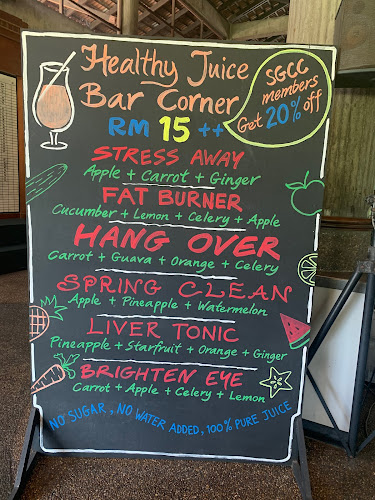 Healthy Juice
Bar Corner
RM 15 ++
SGCC
members
Get 20% off
STRESS AWAY
Apple + Carrot + Ginger
FAT BURNER
Cucumber + Lemon + Celery + Apple
HANG OVER
Carrot + Guava + Orange + Celery
SPRING CLEAN
Apple + Pineapple + Watermelon
LIVER TONIC
Pineapple + Starfruit + Orange + Ginger
BRIGHTEN EYE
Carrot + Apple + Celery + Lemon
NO SUGAR, NO WATER ADDED, 100% PURE JUICE